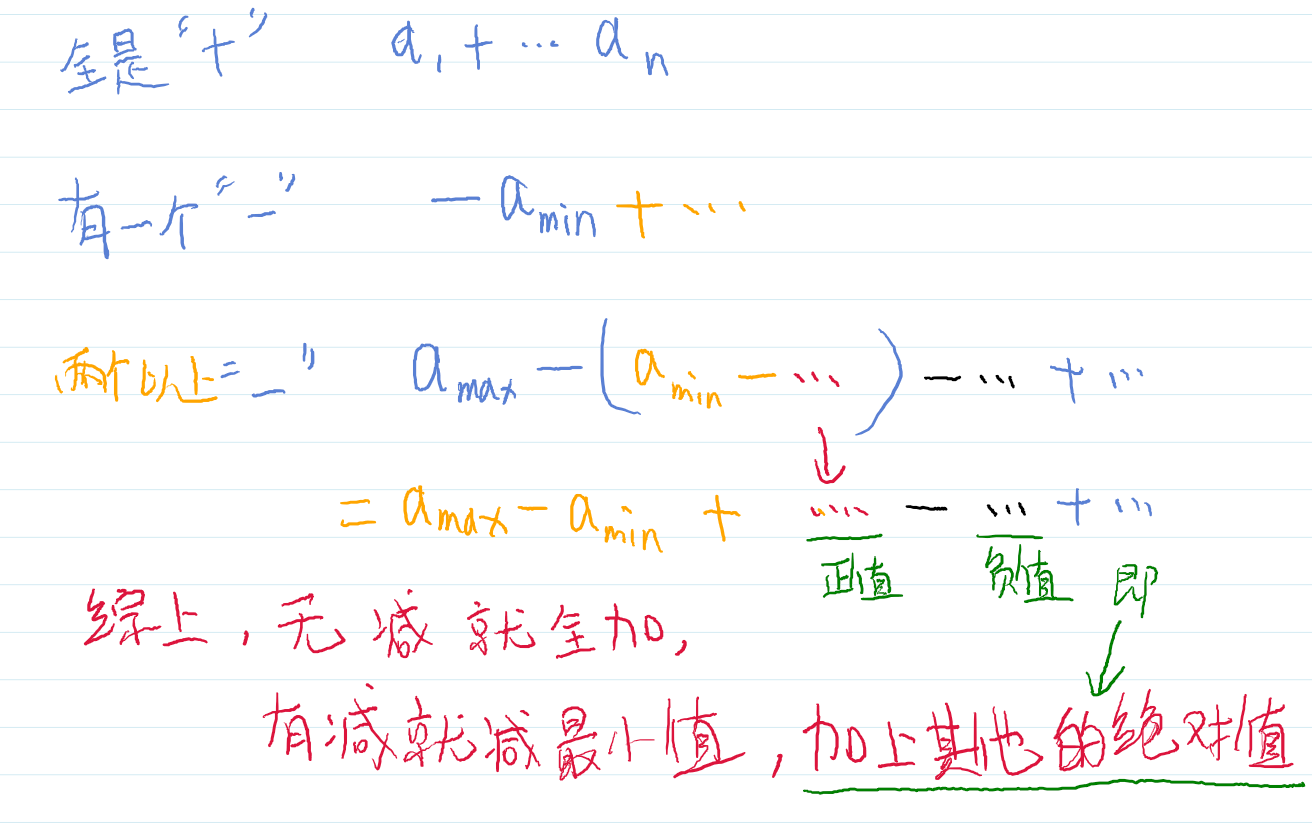 全是“+” a₁+…aₙ
有一个“-” -a_min+…
两个以上“-” a_max-(a_min-…)-…+…
=a_max-a_min+….-…+…
正值 负值 即
综上,无减就全加,
有减就减最小值,加上其他的绝对值